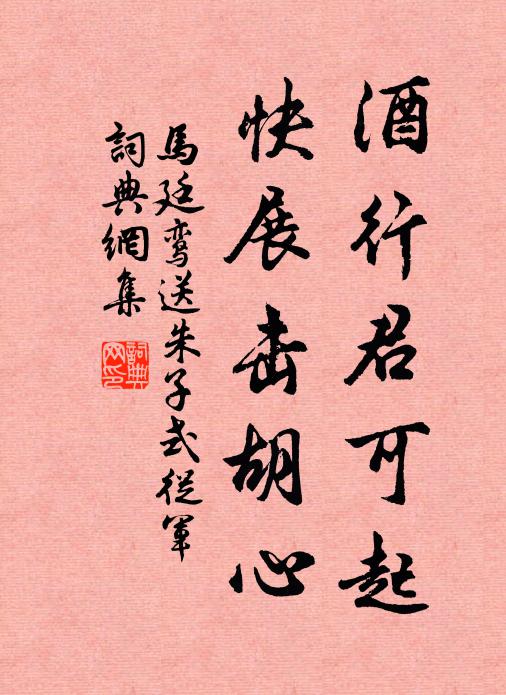 酒行君可起
快展击胡心
馬廷鸾送朱子式從軍
詞典網集
詞典網印